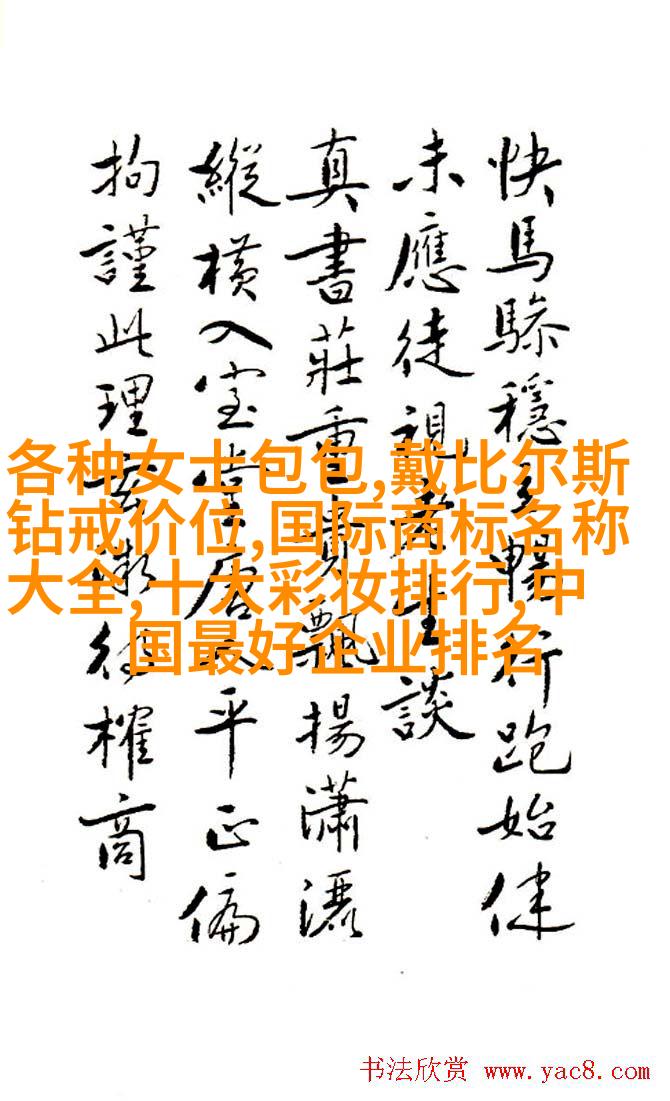 快馬穩暢行跑始健
未應徒談
真書莊重貴飄揚瀟灑
縱橫入室堂居平正偏
拘謹此理微待榷商
各种女士包包,戴比尔斯
钻戒价位,国际商标名称
大全,十大彩妆排行,中
国最好企业排名
书法欣赏 www.yac8.com